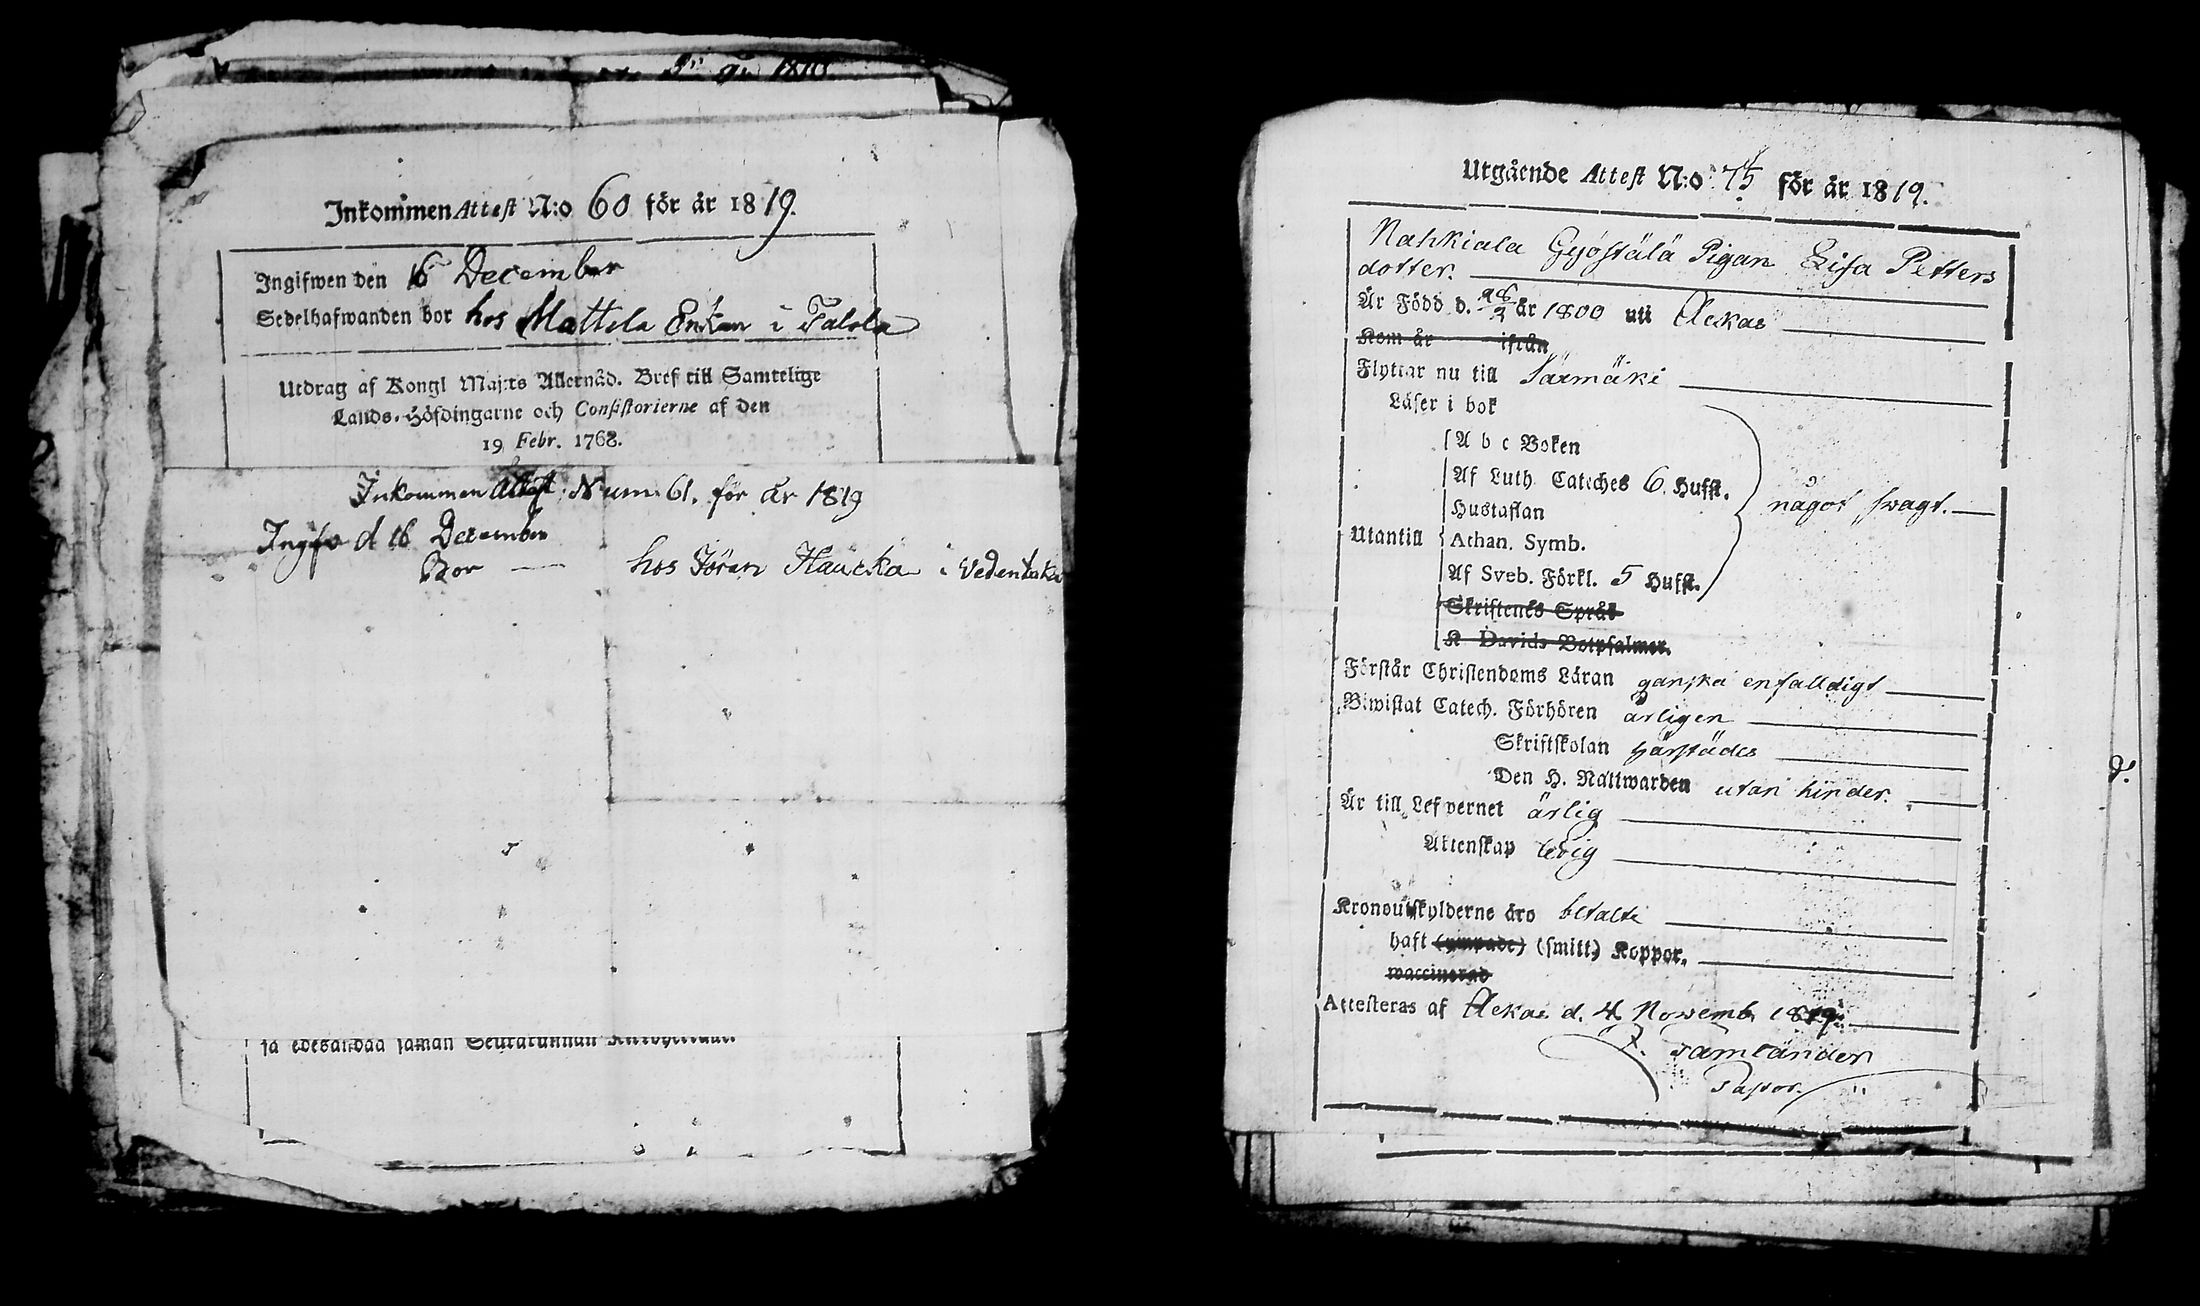 Inkommen Attest N:o 60 för år 1819.
Ingifwen den 16 December
Sedelhafwanden bor hos Mattila Enkan i Talola
Utdrag af Kongl Maj:ts Allernåd. Bref till Samtelige
Lands-Höfdingarne och Consistorierne af den
19 Febr. 1768.
Inkommen Attest Num 61. för år 1819
Ingifv d 16 December
Bor — hos Jöran Haucka i Vedentaka
ja edesandaa saman Seurakunnan
Utgående Attest N:o 75 för år 1819.
Nahkiala Gyöstälä Pigan Lisa Petters
dotter.
Är Född d. 28/2 år 1800 uti Ackas
Kom år ifrån
Flyttar nu till Särmäki
Läser i bok
A b c Boken
Af Luth Cateches 6. Hufst.
Hustaflan
något swagt.
Utantill Athan. Symb.
Af Sveb. Förkl. 5 Hufst.
Skriftenes Språk
K Davids Botpsalmer.
Förstår Christendoms Läran ganska enfalldigt
Biwistat Catech. Förhören årligen
Skriftskolan härstädes
Den H. Nattwarden utan hinder.
Är till Lefvernet ärlig
Äktenskap ledig
Kronoutskylderne äro betalte
haft (ympade) (smitt) Koppor.
waccinerad
Attesteras af Ackas d. 4 Novemb 1819.
Tamlander
Pastor.